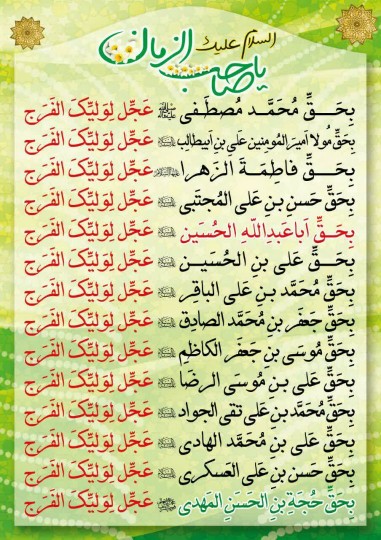 السلام علیک
یا صاحب الزمان
بِحَقِّ مُحَمَّد مُصطَفی ﷺ عَجِّل لِوَلیِّکَ الفَرَج
بِحَقِّ مُولا اَمیرَ المُومِنین عَلی بنِ اَبیطالِب عَجِّل لِوَلیِّکَ الفَرَج
بِحَقِّ فاطِمَةَ الزَهرا عَجِّل لِوَلیِّکَ الفَرَج
بِحَقِّ حَسَنِ بنِ عَلی المُجتَبی عَجِّل لِوَلیِّکَ الفَرَج
بِحَقِّ اَباعَبدِاللّهِ الحُسَین عَجِّل لِوَلیِّکَ الفَرَج
بِحَقِّ عَلی بنِ الحُسَیـن عَجِّل لِوَلیِّکَ الفَرَج
بِحَقِّ مُحَمَّد بنِ عَلی الباقِر عَجِّل لِوَلیِّکَ الفَرَج
بِحَقِّ جَعفَر بنِ مُحَمَّد الصادِق عَجِّل لِوَلیِّکَ الفَرَج
بِحَقِّ مُوسَی بنِ جَعفَر الکاظِم عَجِّل لِوَلیِّکَ الفَرَج
بِحَقِّ عَلی بنِ مُوسَی الرِضَا عَجِّل لِوَلیِّکَ الفَرَج
بِحَقِّ مُحَمَّد بنِ عَلی تقی الجواد عَجِّل لِوَلیِّکَ الفَرَج
بِحَقِّ عَلی بنِ مُحَمَّد الهادی عَجِّل لِوَلیِّکَ الفَرَج
بِحَقِّ حَسن بنِ عَلی العَسکری عَجِّل لِوَلیِّکَ الفَرَج
بِحَقِّ حُجَةِ بنِ الحَسَنِ المَهدی عَجِّل لِوَلیِّکَ الفَرَج